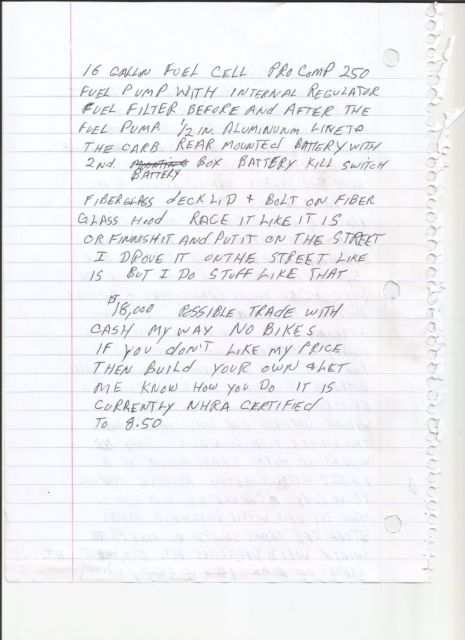 16 GALLON FUEL CELL PRO COMP 250
FUEL PUMP WITH INTERNAL REGULATOR
FUEL FILTER BEFORE AND AFTER THE
FUEL PUMP 1/2 IN. ALUMINUM LINE TO
THE CARB REAR MOUNTED BATTERY WITH
2ND. BOX BATTERY KILL SWITCH
BATTERY
FIBERGLASS DECK LID + BOLT ON FIBER
GLASS HOOD RACE IT LIKE IT IS
OR FINNISH IT AND PUT IT ON THE STREET
I DROVE IT ON THE STREET LIKE
IS BUT I DO STUFF LIKE THAT
$18,000 POSSIBLE TRADE WITH
CASH MY WAY NO BIKES
IF YOU DON'T LIKE MY PRICE
THEN BUILD YOUR OWN & LET
ME KNOW HOW YOU DO IT IS
CURRENTLY NHRA CERTIFIED
TO 8.50